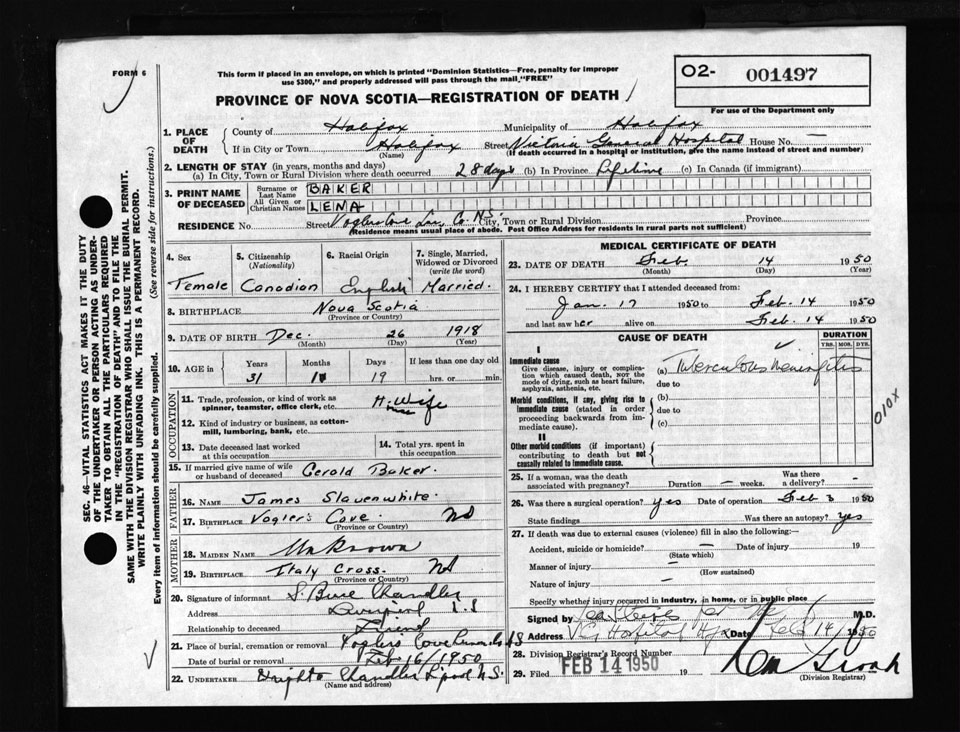 FORM 6
This form if placed in an envelope, on which is printed "Dominion Statistics—Free, penalty for improper
use $300," and properly addressed will pass through the mail, "FREE"
PROVINCE OF NOVA SCOTIA—REGISTRATION OF DEATH
O2- 001497
For use of the Department only
SEC. 46—VITAL STATISTICS ACT MAKES IT THE DUTY
OF THE UNDERTAKER OR PERSON ACTING AS UNDER-
TAKER TO OBTAIN ALL THE PARTICULARS REQUIRED
IN THE "REGISTRATION OF DEATH" AND TO FILE THE
SAME WITH THE DIVISION REGISTRAR WHO SHALL ISSUE THE BURIAL PERMIT.
WRITE PLAINLY WITH UNFADING INK. THIS IS A PERMANENT RECORD.
Every item of information should be carefully supplied. (See reverse side for instructions.)
1. PLACE OF DEATH
County of Halifax Municipality of Halifax
If in City or Town Halifax Street Victoria General Hospital House No. —
(Name) (If death occurred in a hospital or institution, give the name instead of street and number)
2. LENGTH OF STAY (in years, months and days)
(a) In City, Town or Rural Division where death occurred 28 days (b) In Province Lifetime (c) In Canada (if immigrant)
3. PRINT NAME OF DECEASED
Surname or Last Name BAKER
All Given or Christian Names LENA
RESIDENCE No. Street Voglers Cove Lun. Co. N.S. City, Town or Rural Division Province
(Residence means usual place of abode. Post Office Address for residents in rural parts not sufficient)
4. Sex 5. Citizenship (Nationality) 6. Racial Origin 7. Single, Married, Widowed or Divorced (write the word)
Female Canadian English Married.
8. BIRTHPLACE Nova Scotia
(Province or Country)
9. DATE OF BIRTH Dec. 26 1918
(Month) (Day) (Year)
10. AGE in Years Months Days If less than one day old
31 1 19 hrs. or min.
OCCUPATION
11. Trade, profession, or kind of work as
spinner, teamster, office clerk, etc. H. Wife
12. Kind of industry or business, as cotton-
mill, lumbering, bank, etc.
13. Date deceased last worked
at this occupation
14. Total yrs. spent in
this occupation
15. If married give name of wife
or husband of deceased Gerold Baker.
FATHER
16. NAME James Slauenwhite.
17. BIRTHPLACE Vogler's Cove. NS
(Province or Country)
MOTHER
18. MAIDEN NAME Unknown
19. BIRTHPLACE Italy Cross. NS
(Province or Country)
20. Signature of informant Chandler
Address Liverpool
Relationship to deceased Friend
21. Place of burial, cremation or removal Voglers Cove N S
Date of burial or removal Feb 16/1950
22. UNDERTAKER Chandler L'pool N.S.
(Name and address)
MEDICAL CERTIFICATE OF DEATH
23. DATE OF DEATH Feb. 14 1950
(Month) (Day) (Year)
24. I HEREBY CERTIFY that I attended deceased from:
Jan. 17 1950 to Feb. 14 1950
and last saw her alive on Feb. 14 1950
CAUSE OF DEATH
DURATION
YRS. MOS. DYS.
I
Immediate cause
Give disease, injury or complica-
tion which caused death, not the
mode of dying, such as heart failure,
asphyxia, asthenia, etc.
(a) Tuberculous Meningitis
due to
Morbid conditions, if any, giving rise to
immediate cause (stated in order
proceeding backwards from im-
mediate cause).
(b)
due to
(c)
010X
II
Other morbid conditions (if important)
contributing to death but not
causally related to immediate cause.
25. If a woman, was the death
associated with pregnancy? Duration — weeks. Was there
a delivery? -
26. Was there a surgical operation? yes Date of operation Feb 3 1950
State findings Was there an autopsy? yes
27. If death was due to external causes (violence) fill in also the following:—
Accident, suicide or homicide? — Date of injury 19
(State which)
Manner of injury —
(How sustained)
Nature of injury —
Specify whether injury occurred in industry, in home, or in public place
Signed by M.D.
Address V.G. Hospital Hfx Date Feb 14/1950
28. Division Registrar's Record Number
29. Filed FEB 14 1950 19
(Division Registrar)